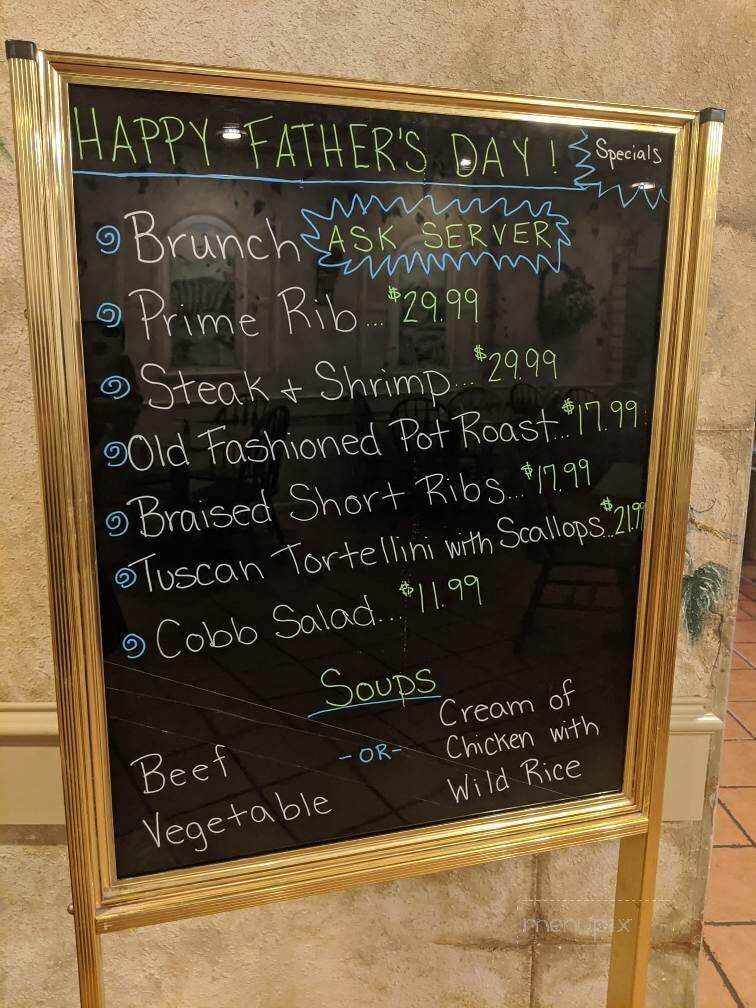 HAPPY FATHER'S DAY! Specials
Brunch ASK SERVER
Prime Rib... $29.99
Steak + Shrimp... $29.99
Old Fashioned Pot Roast... $17.99
Braised Short Ribs... $17.99
Tuscan Tortellini with Scallops... $21.99
Cobb Salad... $11.99
Soups
Beef
Vegetable
-OR-
Cream of
Chicken with
Wild Rice
menupix